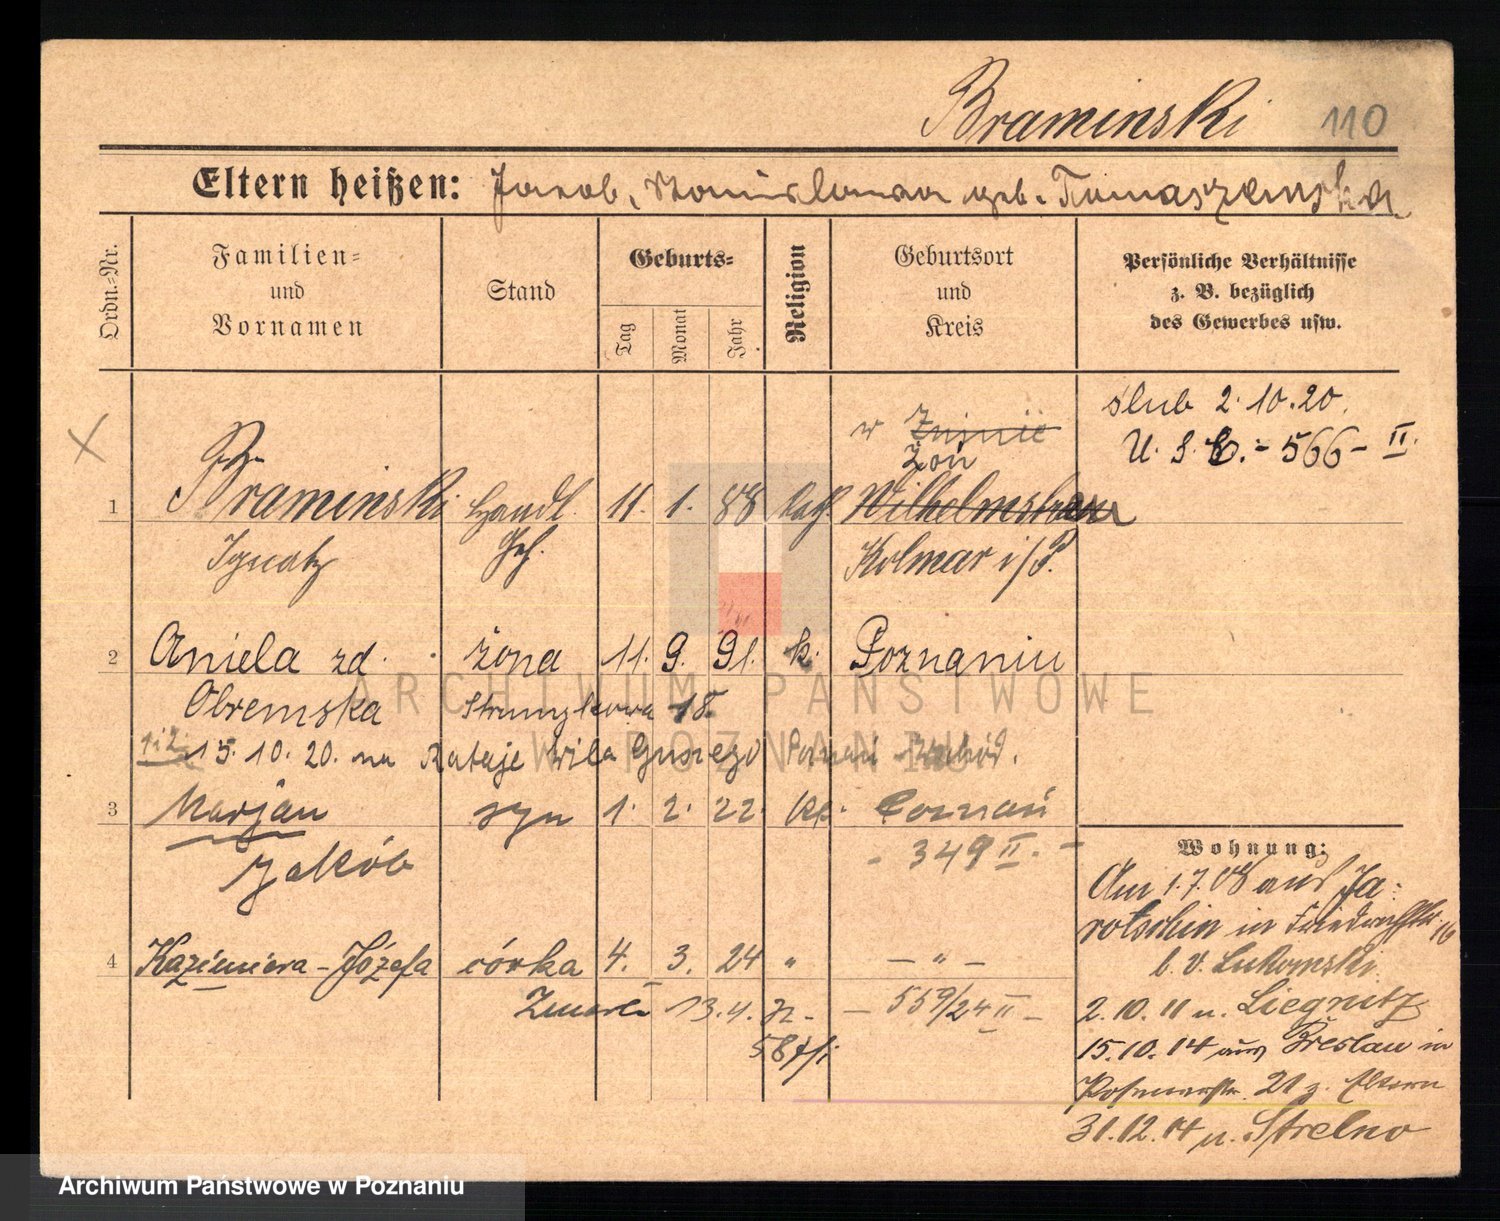 Braminski 110
Eltern heißen: Jakob, Stanislawa geb. Tomaszewska
Ordn.=Nr.
Familien=
und
Vornamen
Stand
Geburts=
Tag
Monat
Jahr
Religion
Geburtsort
und
Kreis
Persönliche Verhältnisse
z. B. bezüglich
des Gewerbes usw.
ślub 2.10.20.
U. S. C. - 566 - II.
w Żninie
Żoń
1 Braminski Handl. 11. 1. 88 kath. Wilhelmstreu
Ignatz Geh. Kolmar i/P.
2 Aniela zd. żona 11. 9. 91. k. Poznaniu
Obremska 18.
1 i 2. 15. 10. 20. na Rataje willa
3 Marjan syn 1. 2. 22. Poznań
Jakób - 349 II. -
4 Kazimiera-Józefa córka 4. 3. 24 " - " -
Zmarła 13.4. - 559/24 II -
Wohnung:
Am 1.7.08 aus Ja=
rotschin in 16
b. v. Lukomski
2.10.11 n. Liegnitz
15.10.14 aus Breslau in
21 z. Eltern
31.12.14 n. Strelno
ARCHIWUM PAŃSTWOWE
W POZNANIU
Archiwum Państwowe w Poznaniu